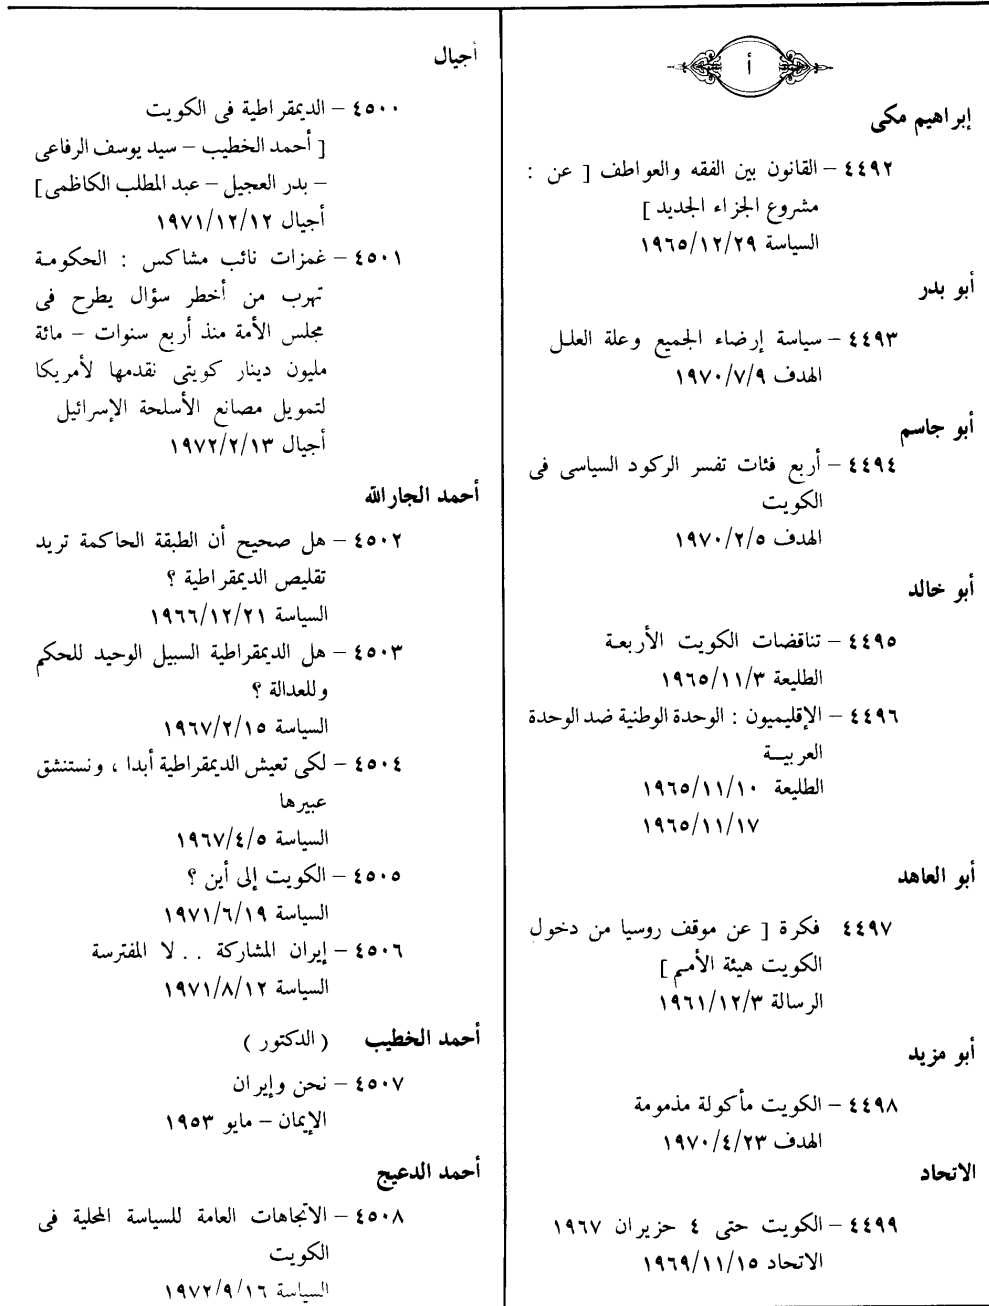 أ
إبراهيم مكى
٤٤٩٢ – القانون بين الفقه والعواطف [ عن :
مشروع الجزاء الجديد ]
السياسة ١٩٦٥/١٢/٢٩
أبو بدر
٤٤٩٣ – سياسة إرضاء الجميع وعلة العلل
الهدف ١٩٧٠/٧/٩
أبو جاسم
٤٤٩٤ – أربع فئات تفسر الركود السياسى فى
الكويت
الهدف ١٩٧٠/٢/٥
أبو خالد
٤٤٩٥ – تناقضات الكويت الأربعة
الطليعة ١٩٦٥/١١/٣
٤٤٩٦ – الإقليميون : الوحدة الوطنية ضد الوحدة
العربيـــة
الطليعة ١٩٦٥/١١/١٠
١٩٦٥/١١/١٧
أبو العاهد
٤٤٩٧ فكرة [ عن موقف روسيا من دخول
الكويت هيئة الأمم ]
الرسالة ١٩٦١/١٢/٣
أبو مزيد
٤٤٩٨ – الكويت مأكولة مذمومة
الهدف ١٩٧٠/٤/٢٣
الاتحاد
٤٤٩٩ – الكويت حتى ٤ حزيران ١٩٦٧
الاتحاد ١٩٦٩/١١/١٥
أجيال
٤٥٠٠ – الديمقراطية فى الكويت
[ أحمد الخطيب – سيد يوسف الرفاعى
– بدر العجيل – عبد المطلب الكاظمى ]
أجيال ١٩٧١/١٢/١٢
٤٥٠١ – غمزات نائب مشاكس : الحكومـة
تهرب من أخطر سؤال يطرح فى
مجلس الأمة منذ أربع سنوات – مائة
مليون دينار كويتى نقدمها لأمريكا
لتمويل مصانع الأسلحة الإسرائيل
أجيال ١٩٧٢/٢/١٣
أحمد الجارالله
٤٥٠٢ – هل صحيح أن الطبقة الحاكمة تريد
تقليص الديمقراطية ؟
السياسة ١٩٦٦/١٢/٢١
٤٥٠٣ – هل الديمقراطية السبيل الوحيد للحكم
وللعدالة ؟
السياسة ١٩٦٧/٢/١٥
٤٥٠٤ – لكى تعيش الديمقراطية أبدا ، ونستنشق
عبيرها
السياسة ١٩٦٧/٤/٥
٤٥٠٥ – الكويت إلى أين ؟
السياسة ١٩٧١/٦/١٩
٤٥٠٦ – إيران المشاركة . . لا المفترسة
السياسة ١٩٧١/٨/١٢
أحمد الخطيب ( الدكتور )
٤٥٠٧ – نحن وإيران
الإيمان – مايو ١٩٥٣
أحمد الدعيج
٤٥٠٨ – الاتجاهات العامة للسياسة المحلية فى
الكويت
السياسة ١٩٧٢/٩/١٦